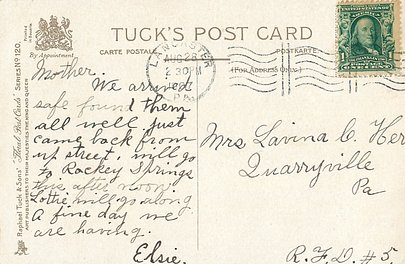 TUCK'S POST CARD
CARTE POSTALE.
POSTKARTE
(FOR ADDRESS ONLY.)
By Appointment
Raphael Tuck & Sons' "Heraldic Post Cards" SERIES No 120.
ART PUBLISHERS TO THEIR MAJESTIES THE KING AND QUEEN
LANCASTER
AUG 28
2 30 PM
PA.
Mother.
We arrived
safe found them
all well just
came back from
up street, will go
to Rockey Springs
this after noon
Lottie will go along
A fine day we
are having.
Elsie.
Mrs Lavina C. Her
Quarryville
Pa
R.F.D. #5.